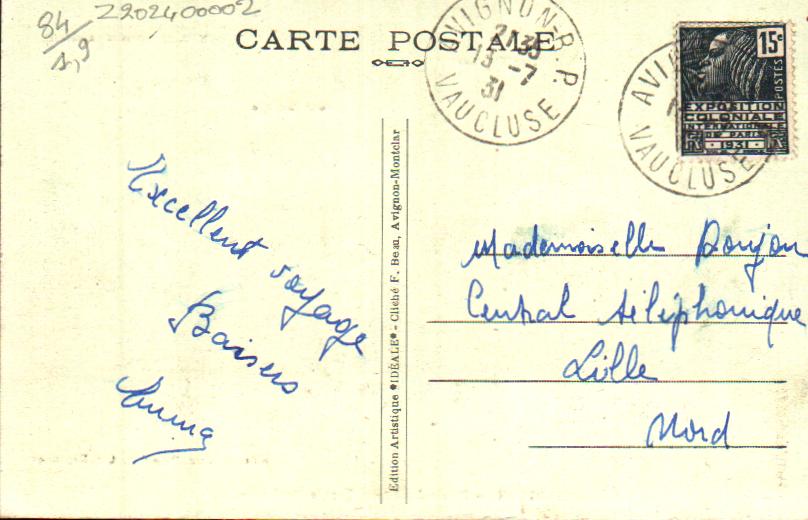 84
1,9
Z202400002
CARTE POSTALE
AVIGNON-R.P.
21 30
13 -7
31
VAUCLUSE
15c
POSTES
EXPOSITION
COLONIALE
INTERNATIONALE
DE PARIS
1931
AVI
VAUCLUSE
Excellent voyage
Baisers
Emma
Edition Artistique "IDÉALE" - Cliché F. Beau, Avignon-Montclar
Mademoiselle Donjon
Central téléphonique
Lille
Nord